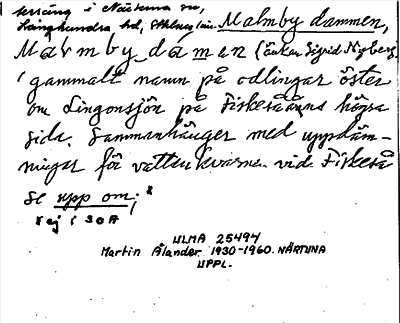 terräng i Närtuna sn,
Långhundra hd, Malmby dammen,
Malmby damen (änkan Sigrid Nyberg.
gammalt namn på odlingar öster
om Lingonsjön på Fiskesååns högra
sida. Sammanhänger med uppdäm-
ningar för vattenkvarnen vid Fiskeså
se upp om; x
x ej i SOA
ULMA 25494
Martin Ålander 1930-1960. NÄRTUNA
UPPL.